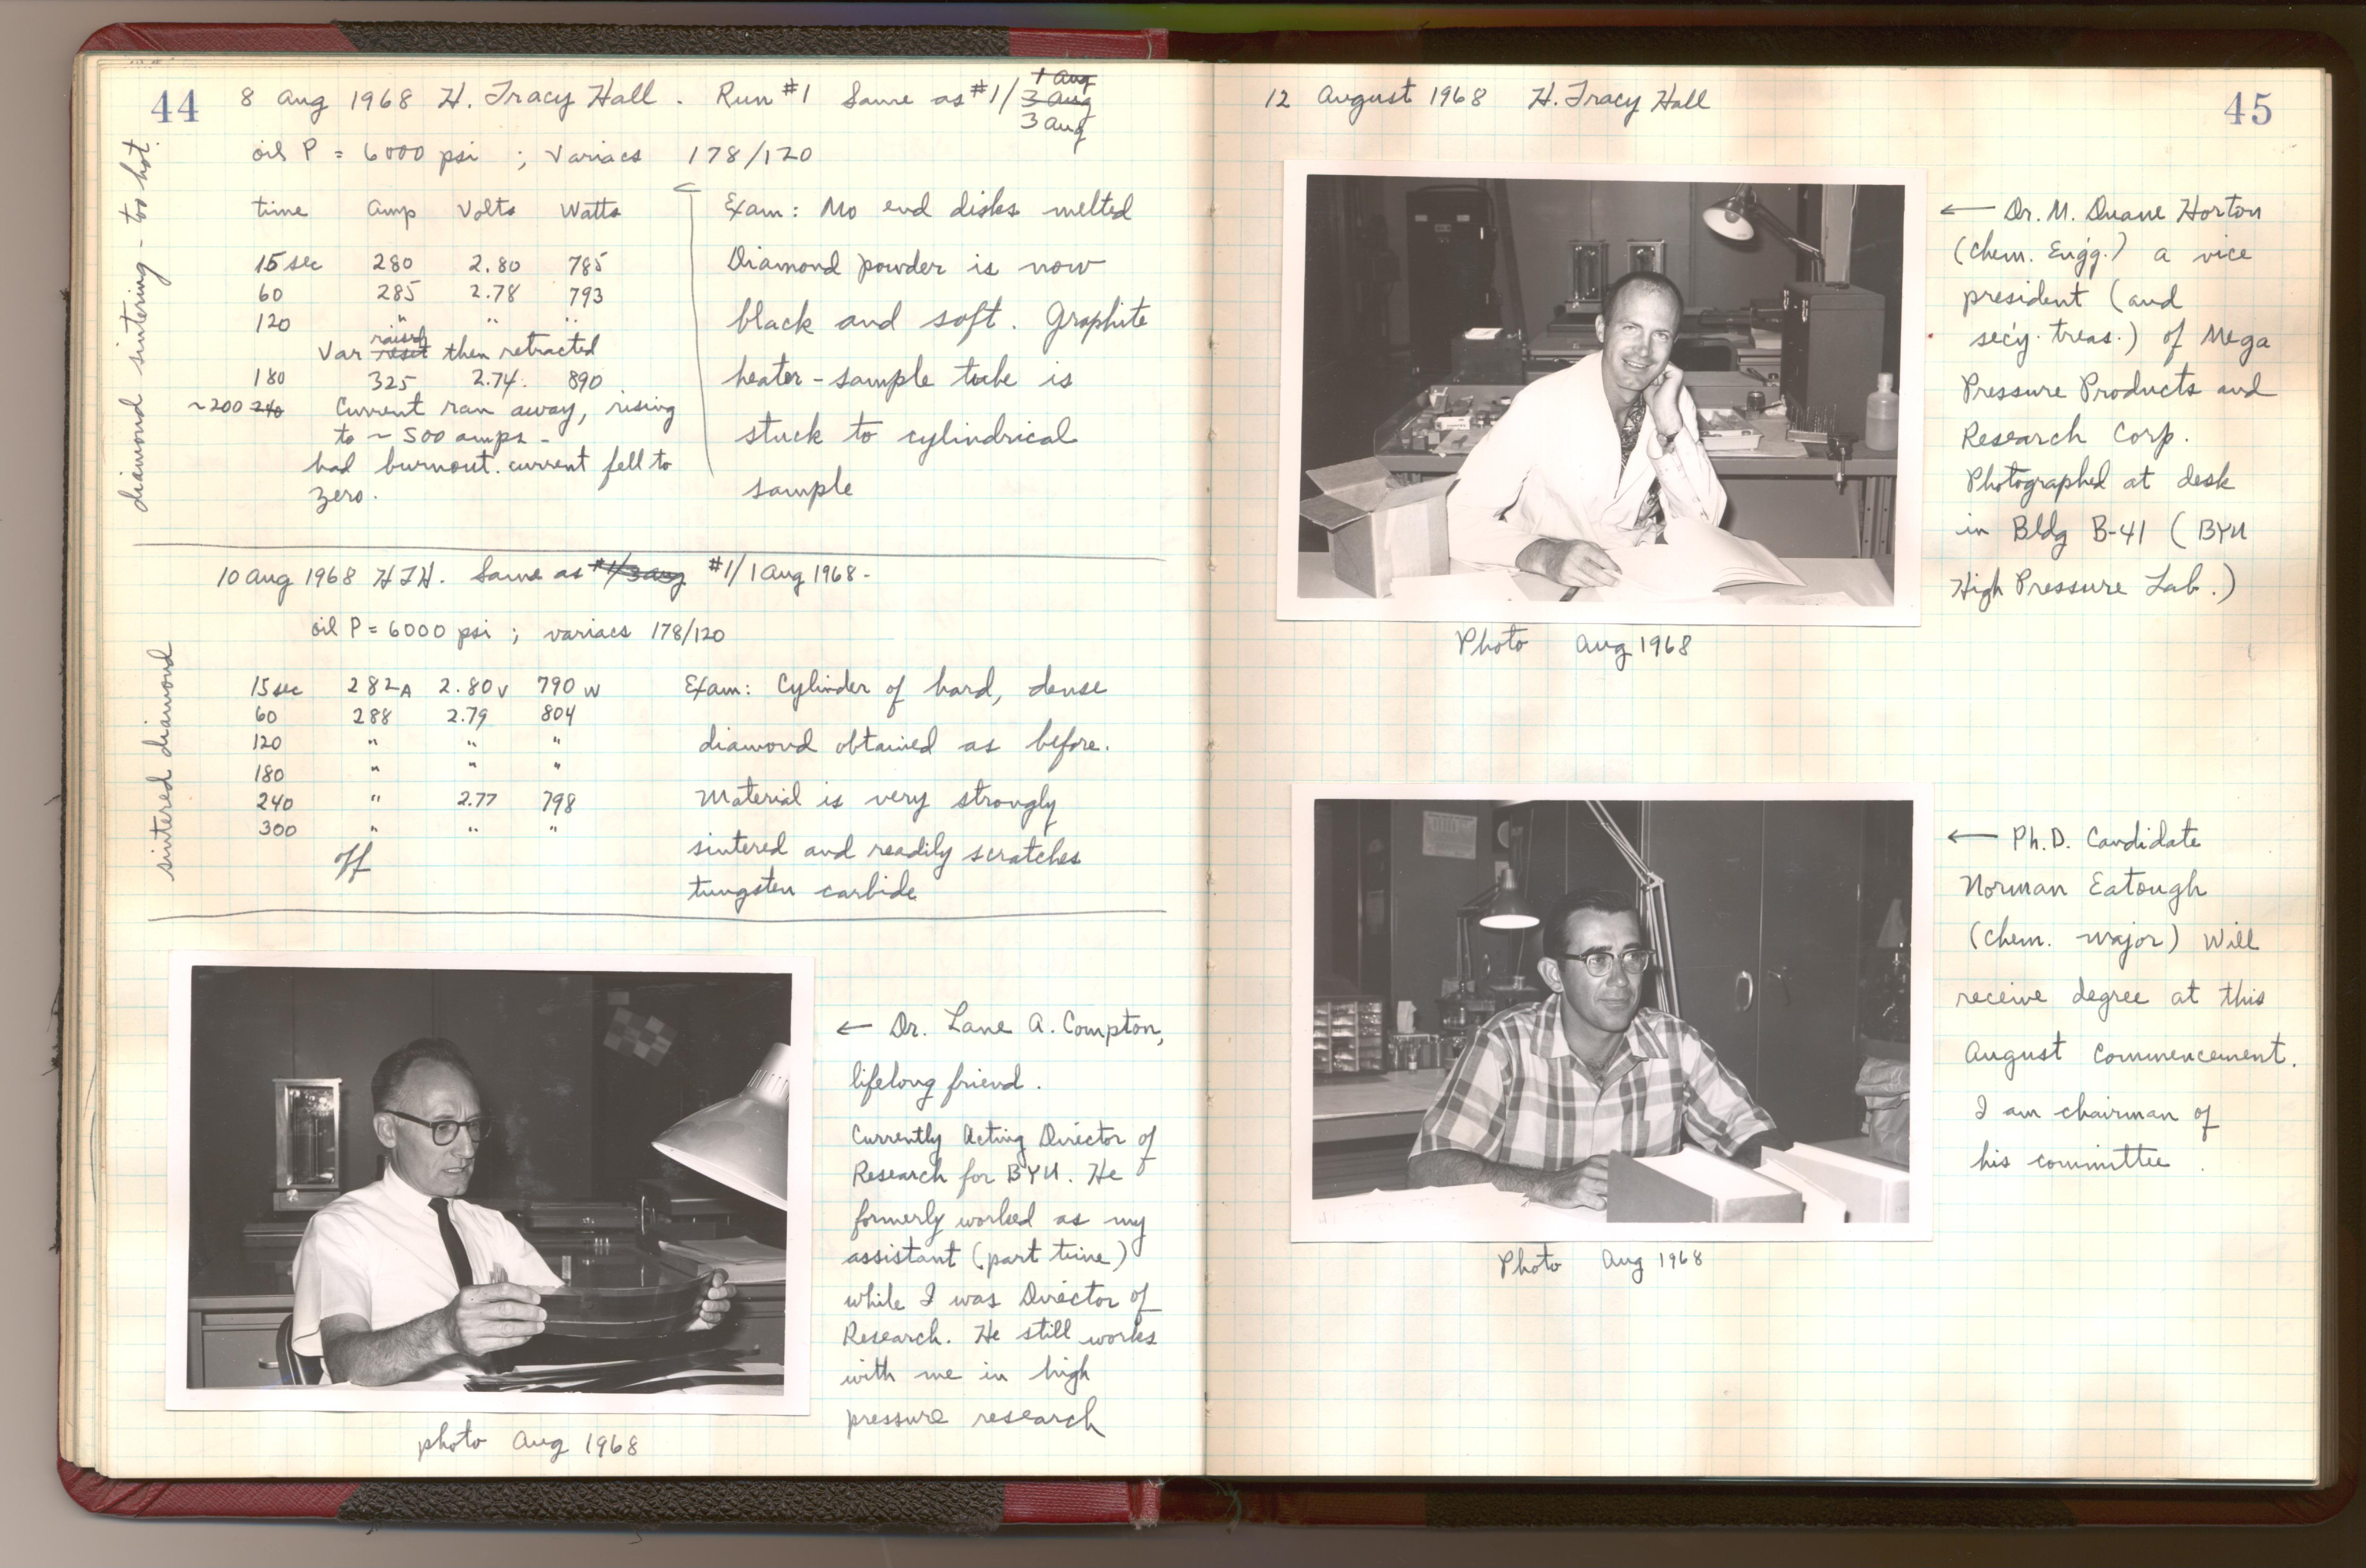 44 8 Aug 1968 H. Tracy Hall. Run #1 Same as #1/ 1 Aug 3 Aug
3 Aug
oil P = 6000 psi ; Variacs 178/120
diamond sintering - too hot.
time Amp Volts Watts
15 sec 280 2.80 785
60 285 2.78 793
120 " " "
Var reset raised then retracted
180 325 2.74. 890
~200 240 Current ran away, rising
to ~ 500 amps -
had burnout. current fell to
zero.
Exam: Mo end disks melted
Diamond powder is now
black and soft. Graphite
heater - sample tube is
stuck to cylindrical
sample
10 Aug 1968 HTH. Same as #1/3 Aug #1/1 Aug 1968-
oil P = 6000 psi ; variacs 178/120
sintered diamond
15 sec 282 A 2.80 V 790 W
60 288 2.79 804
120 " " "
180 " " "
240 " 2.77 798
300 " " "
off
Exam: Cylinder of hard, dense
diamond obtained as before.
Material is very strongly
sintered and readily scratches
tungsten carbide
← Dr. Lane A. Compton,
lifelong friend.
Currently Acting Director of
Research for BYU. He
formerly worked as my
assistant (part time)
while I was Director of
Research. He still works
with me in high
pressure research
photo Aug 1968
12 August 1968 H. Tracy Hall 45
← Dr. M. Duane Horton
(Chem. Eng'g.) a vice
president (and
sec'y. treas.) of Mega
Pressure Products and
Research Corp.
Photographed at desk
in Bldg B-41 (BYU
High Pressure Lab.)
Photo Aug 1968
← Ph.D. Candidate
Norman Eatough
(chem. major) Will
receive degree at this
August Commencement.
I am chairman of
his committee.
Photo Aug 1968